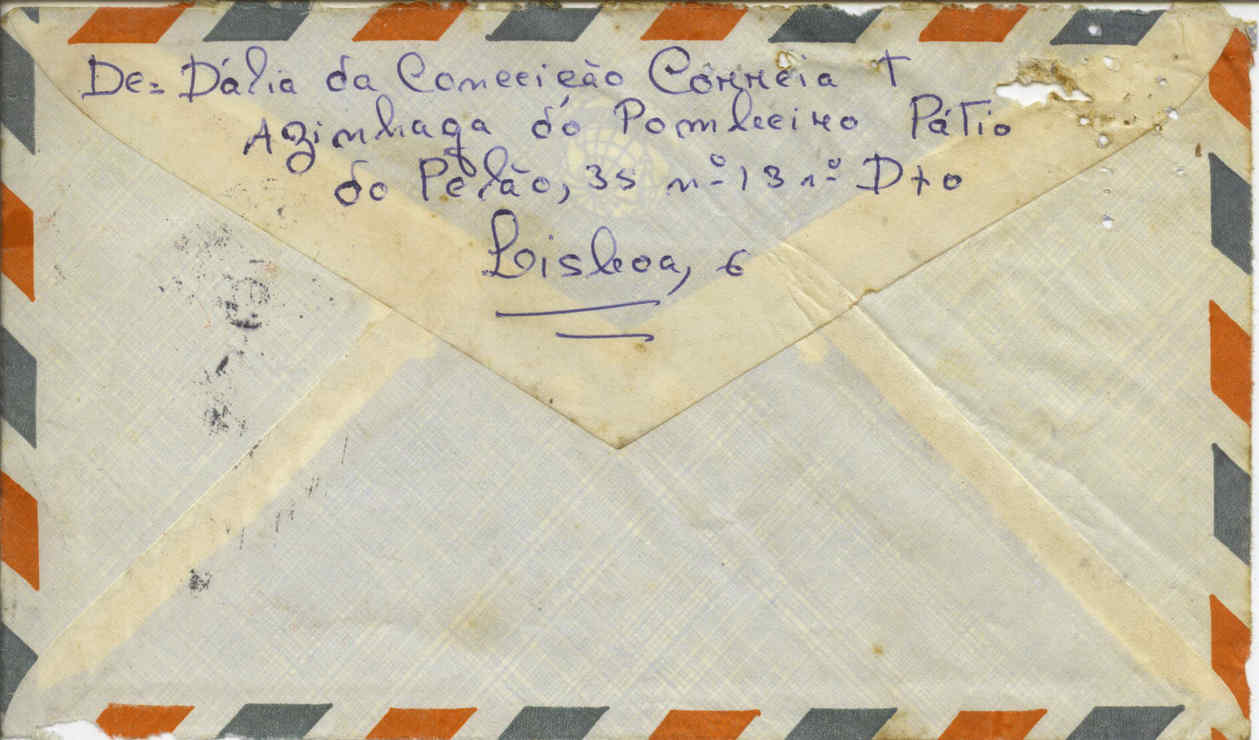 De= Dália da Conceição Correia T
Azinhaga do Pombeiro Pátio
do Pelão, 35 nº 13 rº Dto
Lisboa, 6